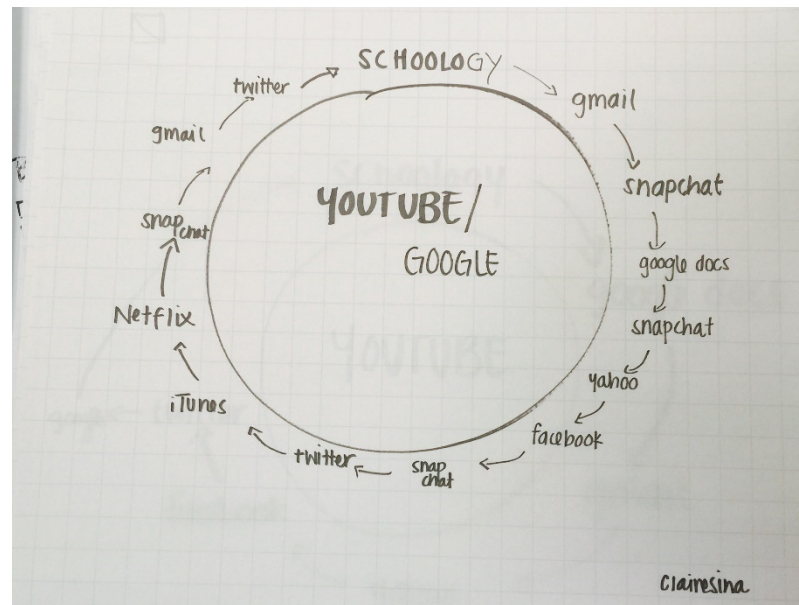 SCHOOLOGY
gmail
snapchat
google docs
snapchat
yahoo
facebook
snap
chat
twitter
iTunes
Netflix
snap
chat
gmail
twitter
YOUTUBE/
GOOGLE
clairesina